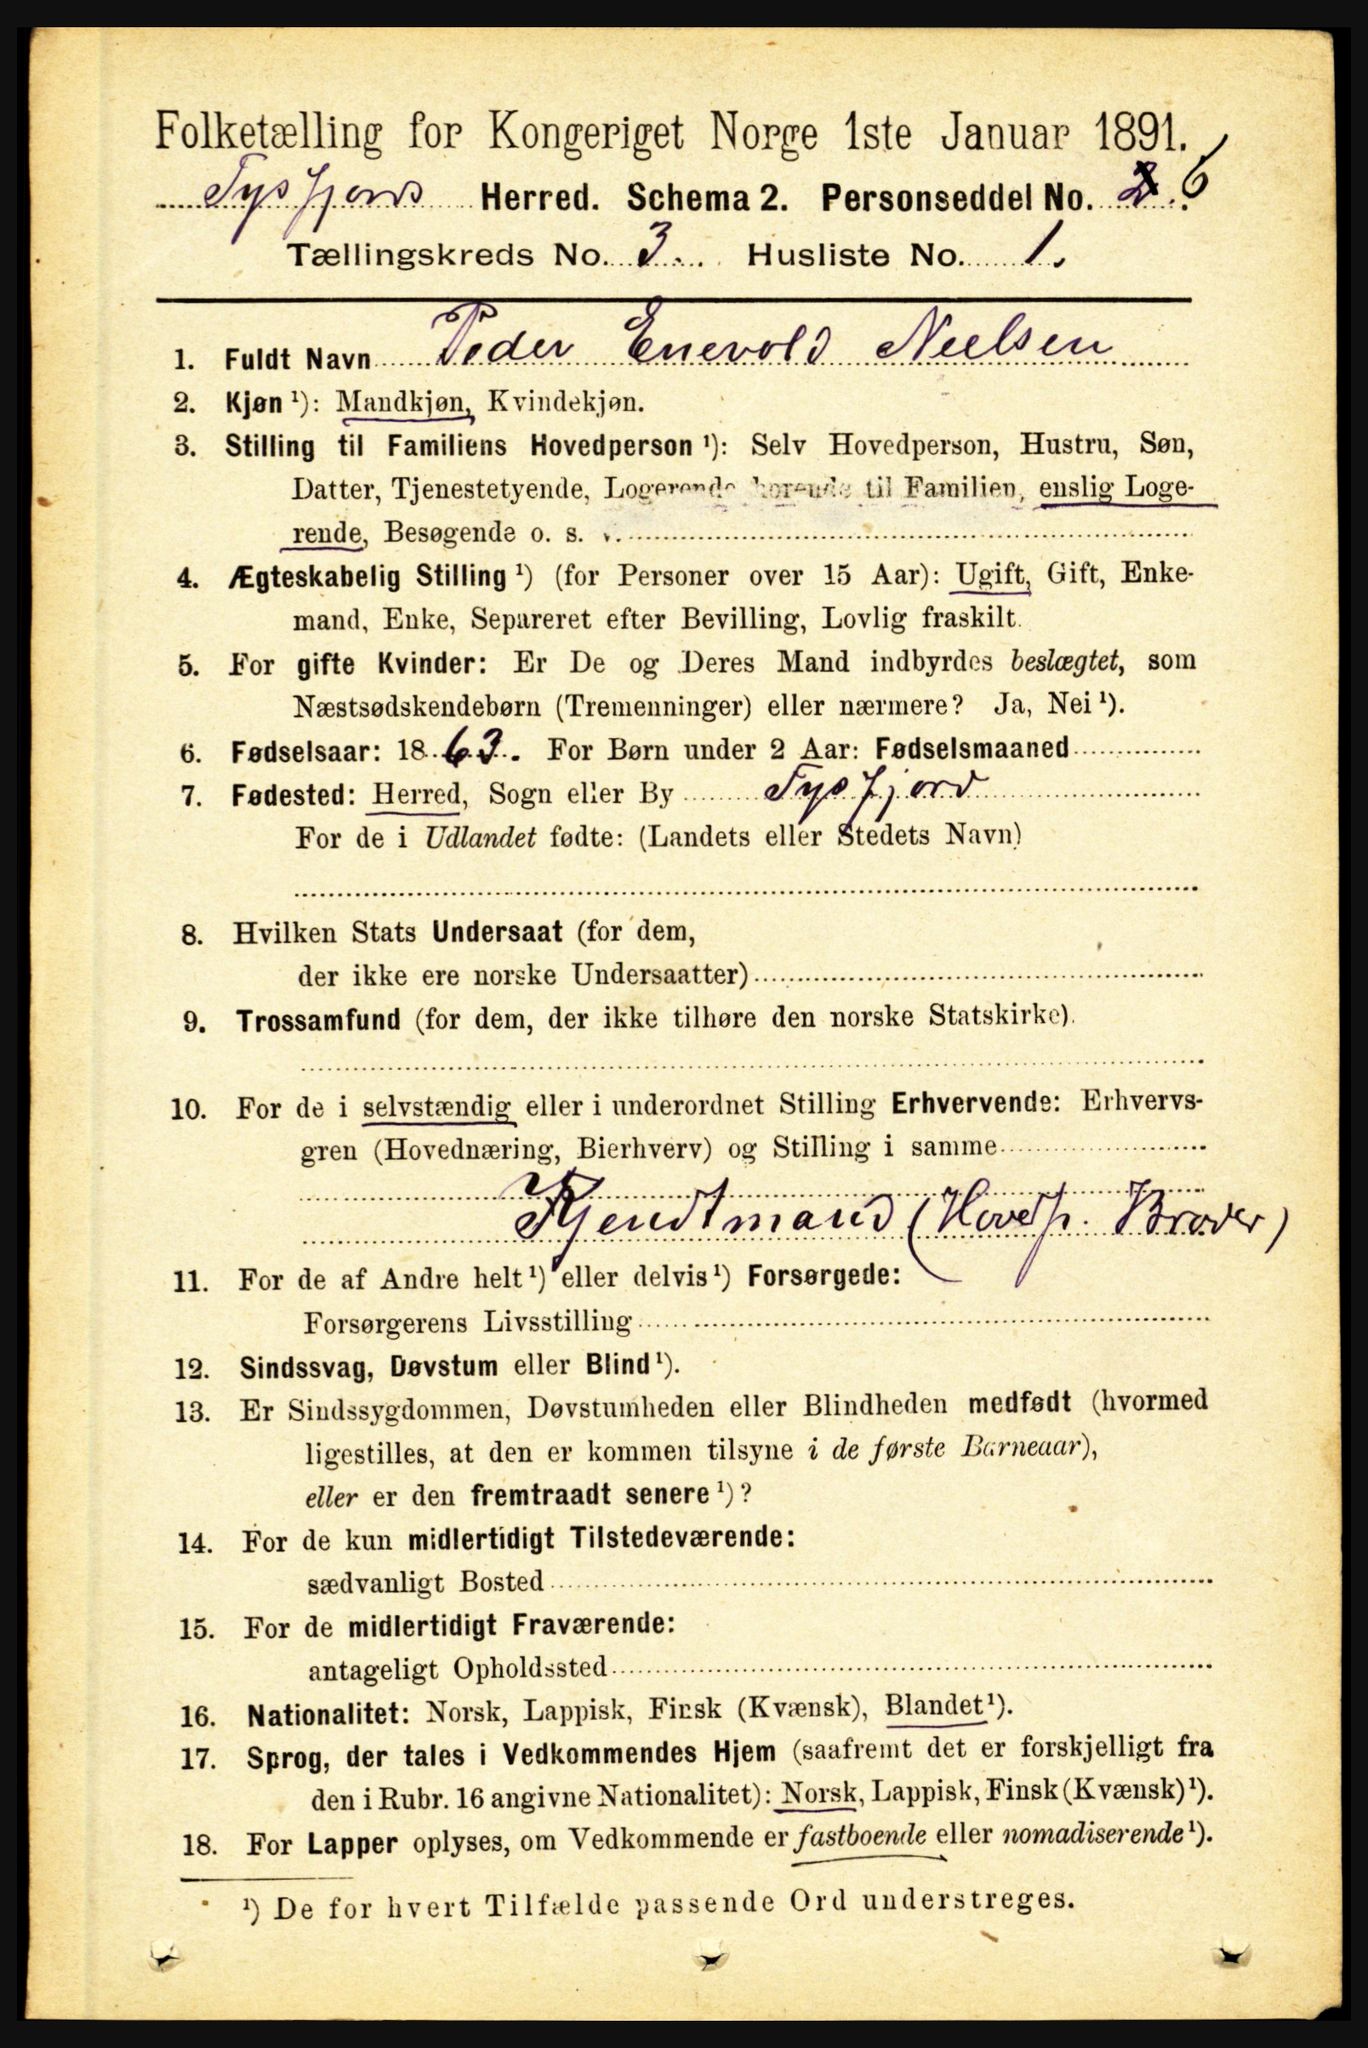 Folketælling for Kongeriget Norge 1ste Januar 1891.
Tysfjords Herred. Schema 2. Personseddel No. 2. 6
Tællingskreds No. 3. Husliste No. 1.
1. Fuldt Navn Peder Enevold Nielsen
2. Kjøn ¹): Mandkjøn, Kvindekjøn.
3. Stilling til Familiens Hovedperson ¹): Selv Hovedperson, Hustru, Søn,
Datter, Tjenestetyende, Logerende hørende til Familien, enslig Loge-
rende, Besøgende o. s. v.
4. Ægteskabelig Stilling ¹) (for Personer over 15 Aar): Ugift, Gift, Enke-
mand, Enke, Separeret efter Bevilling, Lovlig fraskilt.
5. For gifte Kvinder: Er De og Deres Mand indbyrdes beslægtet, som
Næstsødskendebørn (Tremenninger) eller nærmere? Ja, Nei ¹).
6. Fødselsaar: 1863. For Børn under 2 Aar: Fødselsmaaned
7. Fødested: Herred, Sogn eller By Tysfjord
For de i Udlandet fødte: (Landets eller Stedets Navn)
8. Hvilken Stats Undersaat (for dem,
der ikke ere norske Undersaatter)
9. Trossamfund (for dem, der ikke tilhøre den norske Statskirke).
10. For de i selvstændig eller i underordnet Stilling Erhvervende: Erhvervs-
gren (Hovednæring, Bierhverv) og Stilling i samme
(Hovedp. Broder)
11. For de af Andre helt ¹) eller delvis ¹) Forsørgede:
Forsørgerens Livsstilling
12. Sindssvag, Døvstum eller Blind ¹).
13. Er Sindssygdommen, Døvstumheden eller Blindheden medfødt (hvormed
ligestilles, at den er kommen tilsyne i de første Barneaar),
eller er den fremtraadt senere ¹)?
14. For de kun midlertidigt Tilstedeværende:
sædvanligt Bosted
15. For de midlertidigt Fraværende:
antageligt Opholdssted
16. Nationalitet: Norsk, Lappisk, Finsk (Kvænsk), Blandet ¹).
17. Sprog, der tales i Vedkommendes Hjem (saafremt det er forskjelligt fra
den i Rubr. 16 angivne Nationalitet): Norsk, Lappisk, Finsk (Kvænsk) ¹).
18. For Lapper oplyses, om Vedkommende er fastboende eller nomadiserende ¹).
¹) De for hvert Tilfælde passende Ord understreges.